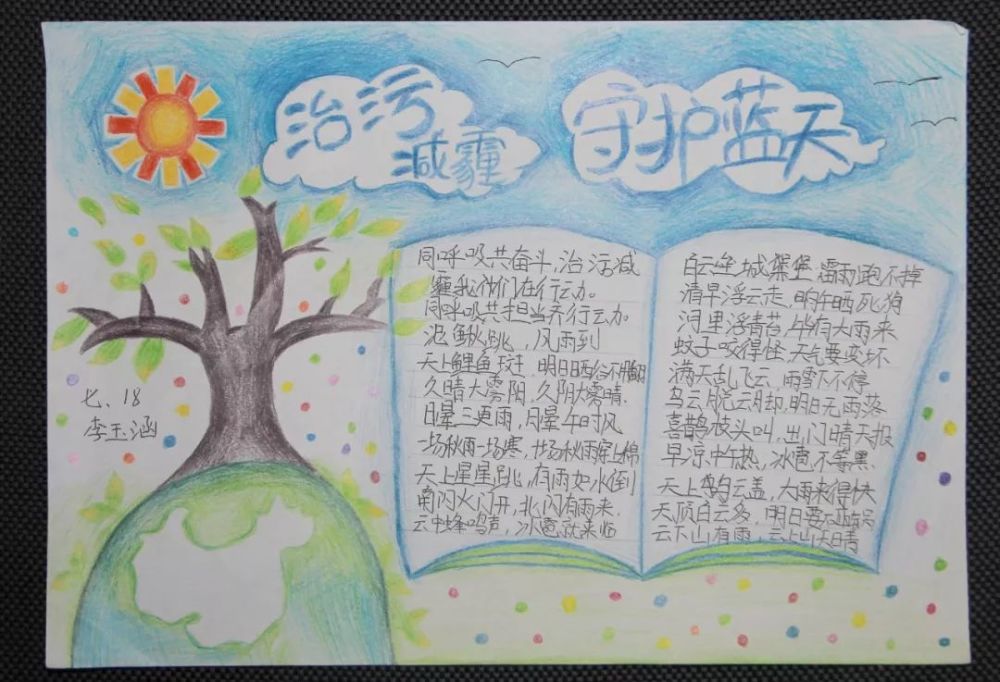 治污
减霾
守护蓝天
同呼吸共奋斗,治污减
霾我们在行动。
同呼吸共担当齐行动
泥鳅跳,风雨到
天上鲤鱼斑 明日晒谷不用翻
久晴大雾阴,久阴大雾晴.
日晕三更雨,月晕午时风
一场秋雨一场寒,十场秋雨穿上棉
天上星星跳,有雨如水倒
南闪火门开,北闪有雨来.
云中蜂鸣声,冰雹就来临
白云坐城堡 雷雨跑不掉
清早浮云走,晌午晒死狗
河里浮青苔,必有大雨来
蚊子咬得怪,天气要变坏
满天乱飞云,雨雪下不停
乌云脱云脚,明日无雨落
喜鹊枝头叫,出门晴天报
早凉中午热,冰雹不等黑
天上云盖,大雨来得快
天顶白云多,明日要
云下山有雨,云上山大晴
七、18
李玉涵